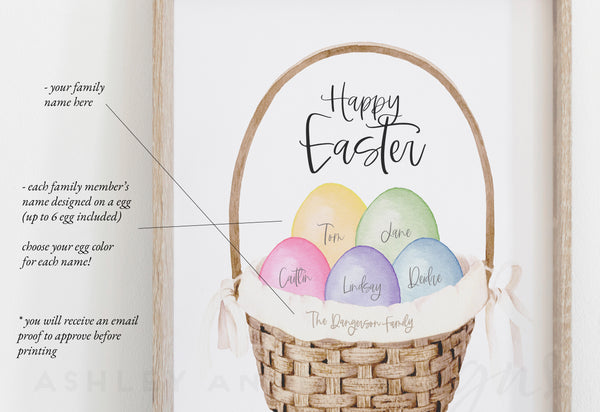 - your family
name here
- each family member's
name designed on a egg
(up to 6 egg included)
choose your egg color
for each name!
* you will receive an email
proof to approve before
printing
Happy
Easter
Tom
Jane
Caitlin
Lindsay
Deidre
The Dangerson Family
ASHLEY AN